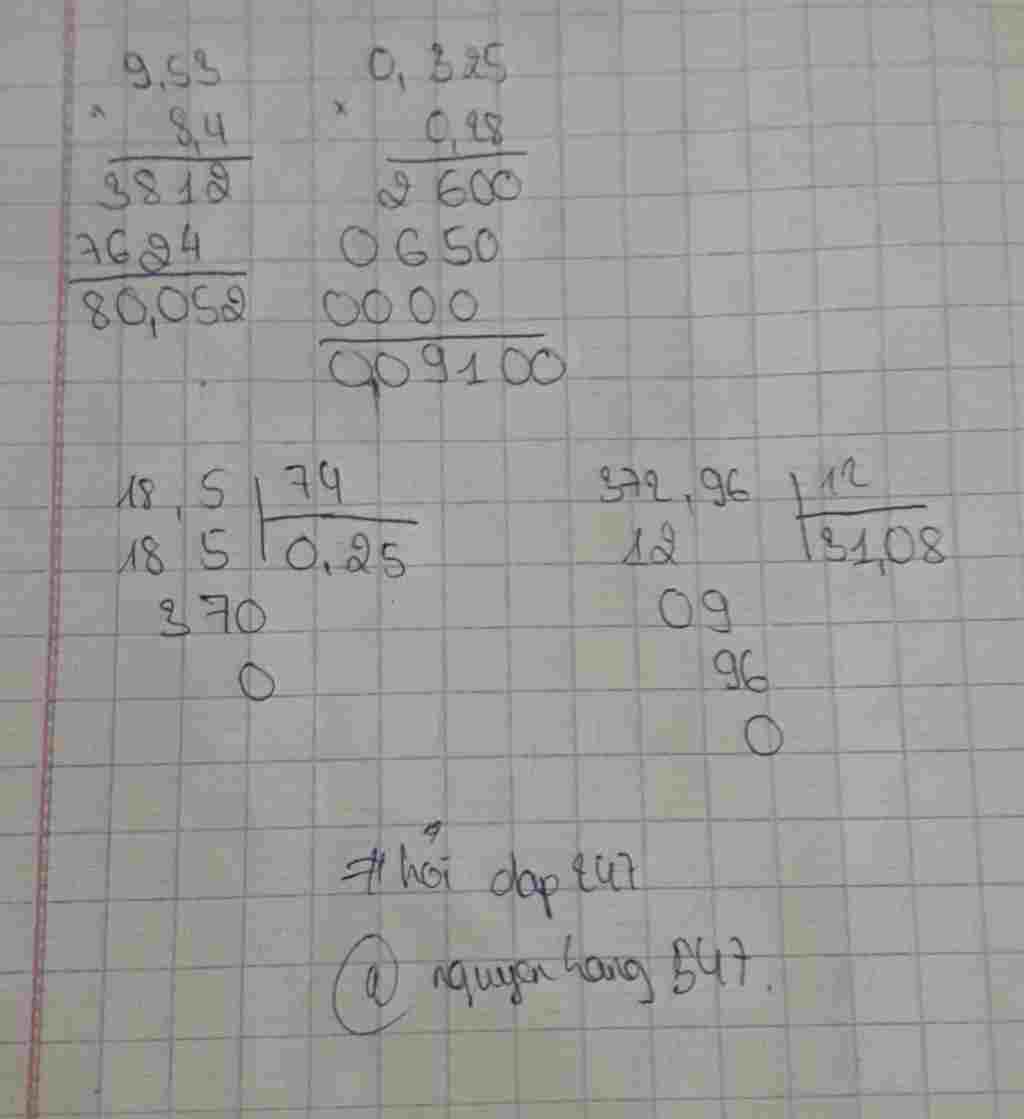 9,53
× 8,4
3812
7624
80,052
0,325
× 0,28
2600
0650
0000
0,09100
18,5 | 74
18 5 | 0,25
370
0
372,96 | 12
12 | 31,08
09
96
0
#hỏi dap 247
@ nguyenhang 547.